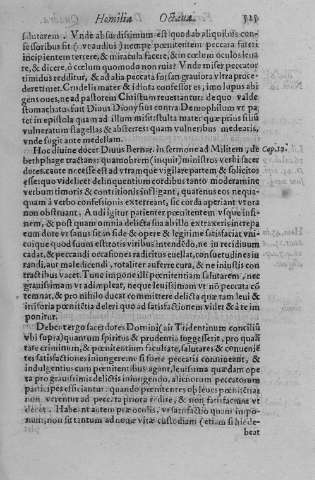 Homilia Octaua. 525
salutarem. Vnde absurdissimum est quod ab aliquibus con-
fessoribus fit (vt audiui) nempe pœnitentem peccata fateri
incipientem terrere, & mirabula facere, & in cœlum oculos leua
re, & dicere, ô cælum quomodo non ruis? Vnde miser peccator
timidus redditur, & ad alia peccata forsan grauiora vltra proce-
deretimet. Crudelis mater & idiota confessor es, imo lupus abi
gens oues, ne ad pastorem Christum reuertantur: de quo valde
stomachatus fuit Diuus Dionysius contra Demophilum vt pa
tet in epistola quadam ad illum missit stulta mater quæ prius filiũ
vulneratum flagellas & absterres quam vulneribus medearis,
vnde fugit ante medellam.
Hoc diuine docet Diuus Bernar. in sermone ad Milites, de Cap. 12.
bethphage tractans: quamobrem (inquit) ministros verbi sacer
dotes caute necesse est ad vtramque vigilare partem & solicitos
esse quo videlicet delinquentium cordibus tanto moderamine
verbum timoris & contritionis infligant, quatenus eos nequa-
quam à verbo confessionis exterreant, sic corda aperiant vt ora
non obstruant. Audi igitur patienter pœnitentem vsque in fi-
nem, & post quam omnia delicta sua ab illo extraxeris in trepa
eum dote vt sanus sit in side & opere & legitime satisfaciat vni-
cuique quod suum est, trota viribus intendẽdo, ne in recidiuum
cadat, & peccandi occasiones radicitus euellat, consuetudines in
randi, aut maledicendi, totaliter auferre cura, & ne iniustis con
tractibus vacet. Tunc impone illi pœnitentiam salutarem, nec
grauissimam vt adimpleat, neque leuissimam vt nõ peccata cõ
temnat, & pro nihilo ducat committere delicta quæ tam leui &
insiforia pœnitẽtia deleri quo ad satisfactionem videt & à te im
ponitur.
Debent ergo sacerdotes Domini (ait Tridentinum conciliũ
vbi supra) quantum spiritus & prudentia suggesserit, pro quali
tate criminum, & pœnitentium facultate, salutares & conuenie
tes satisfactiones iniungere: ne si forte peccatis conniueant, &
indulgentius cum pœnitentibus agant, leuissima quædam ope
ra pro grauissimis delictis iniungendo, alienorum peccatorum
participes efficiantur: quando pœnitentes ob leues pœnitẽtias
non verentur ad peccata priora redire, & non satisfaciunt vt
decet. Habeant autem præ oculis, vt satisfactio quam impo-
nunt, non sit tantum ad nouæ vitæ custodiam (etiam si hæc de-
beat